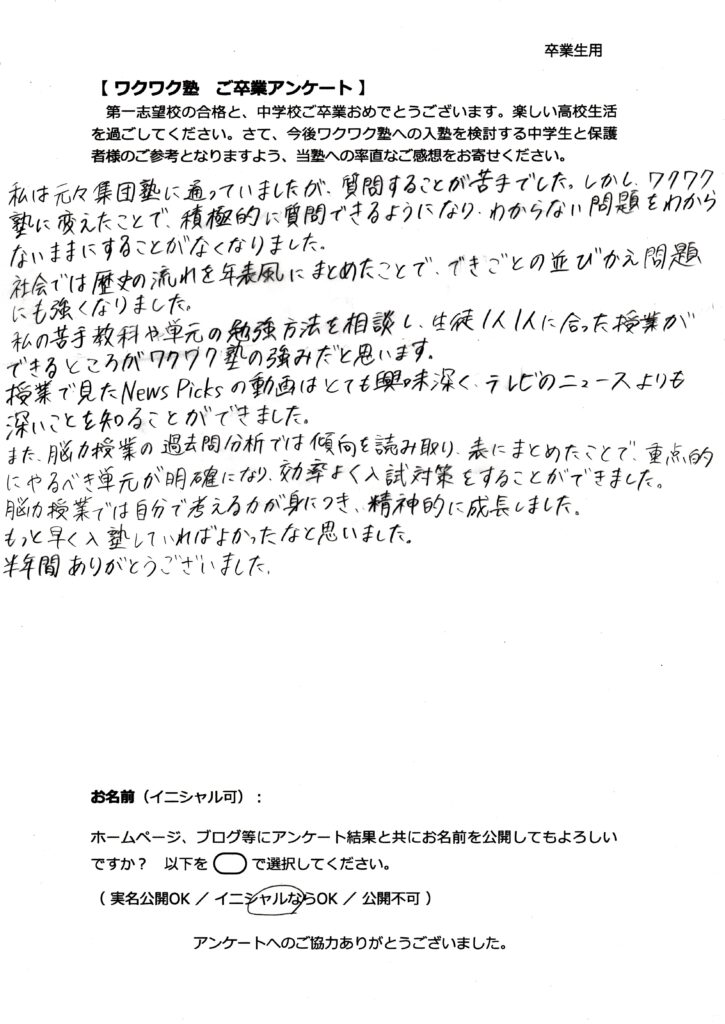 卒業生用
【 ワクワク塾　ご卒業アンケート 】
第一志望校の合格と、中学校ご卒業おめでとうございます。楽しい高校生活
を過ごしてください。さて、今後ワクワク塾への入塾を検討する中学生と保護
者様のご参考となりますよう、当塾への率直なご感想をお寄せください。
私は元々集団塾に通っていましたが、質問することが苦手でした。しかし、ワクワク
塾に変えたことで、積極的に質問できるようになり、わからない問題をわから
ないままにすることがなくなりました。
社会では歴史の流れを年表風にまとめたことで、できごとの並びかえ問題
にも強くなりました。
私の苦手教科や単元の勉強方法を相談し、生徒1人1人に合った授業が
できるところがワクワク塾の強みだと思います。
授業で見たNews Picksの動画はとても興味深く、テレビのニュースよりも
深いことを知ることができました。
また、脳力授業の過去問分析では傾向を読み取り、表にまとめたことで、重点的
にやるべき単元が明確になり、効率よく入試対策をすることができました。
脳力授業では自分で考える力が身につき、精神的に成長しました。
もっと早く入塾していればよかったなと思いました。
半年間ありがとうございました。
お名前（イニシャル可）：
ホームページ、ブログ等にアンケート結果と共にお名前を公開してもよろしい
ですか？　以下を　　で選択してください。
（ 実名公開OK ／ イニシャルならOK ／ 公開不可 ）
アンケートへのご協力ありがとうございました。